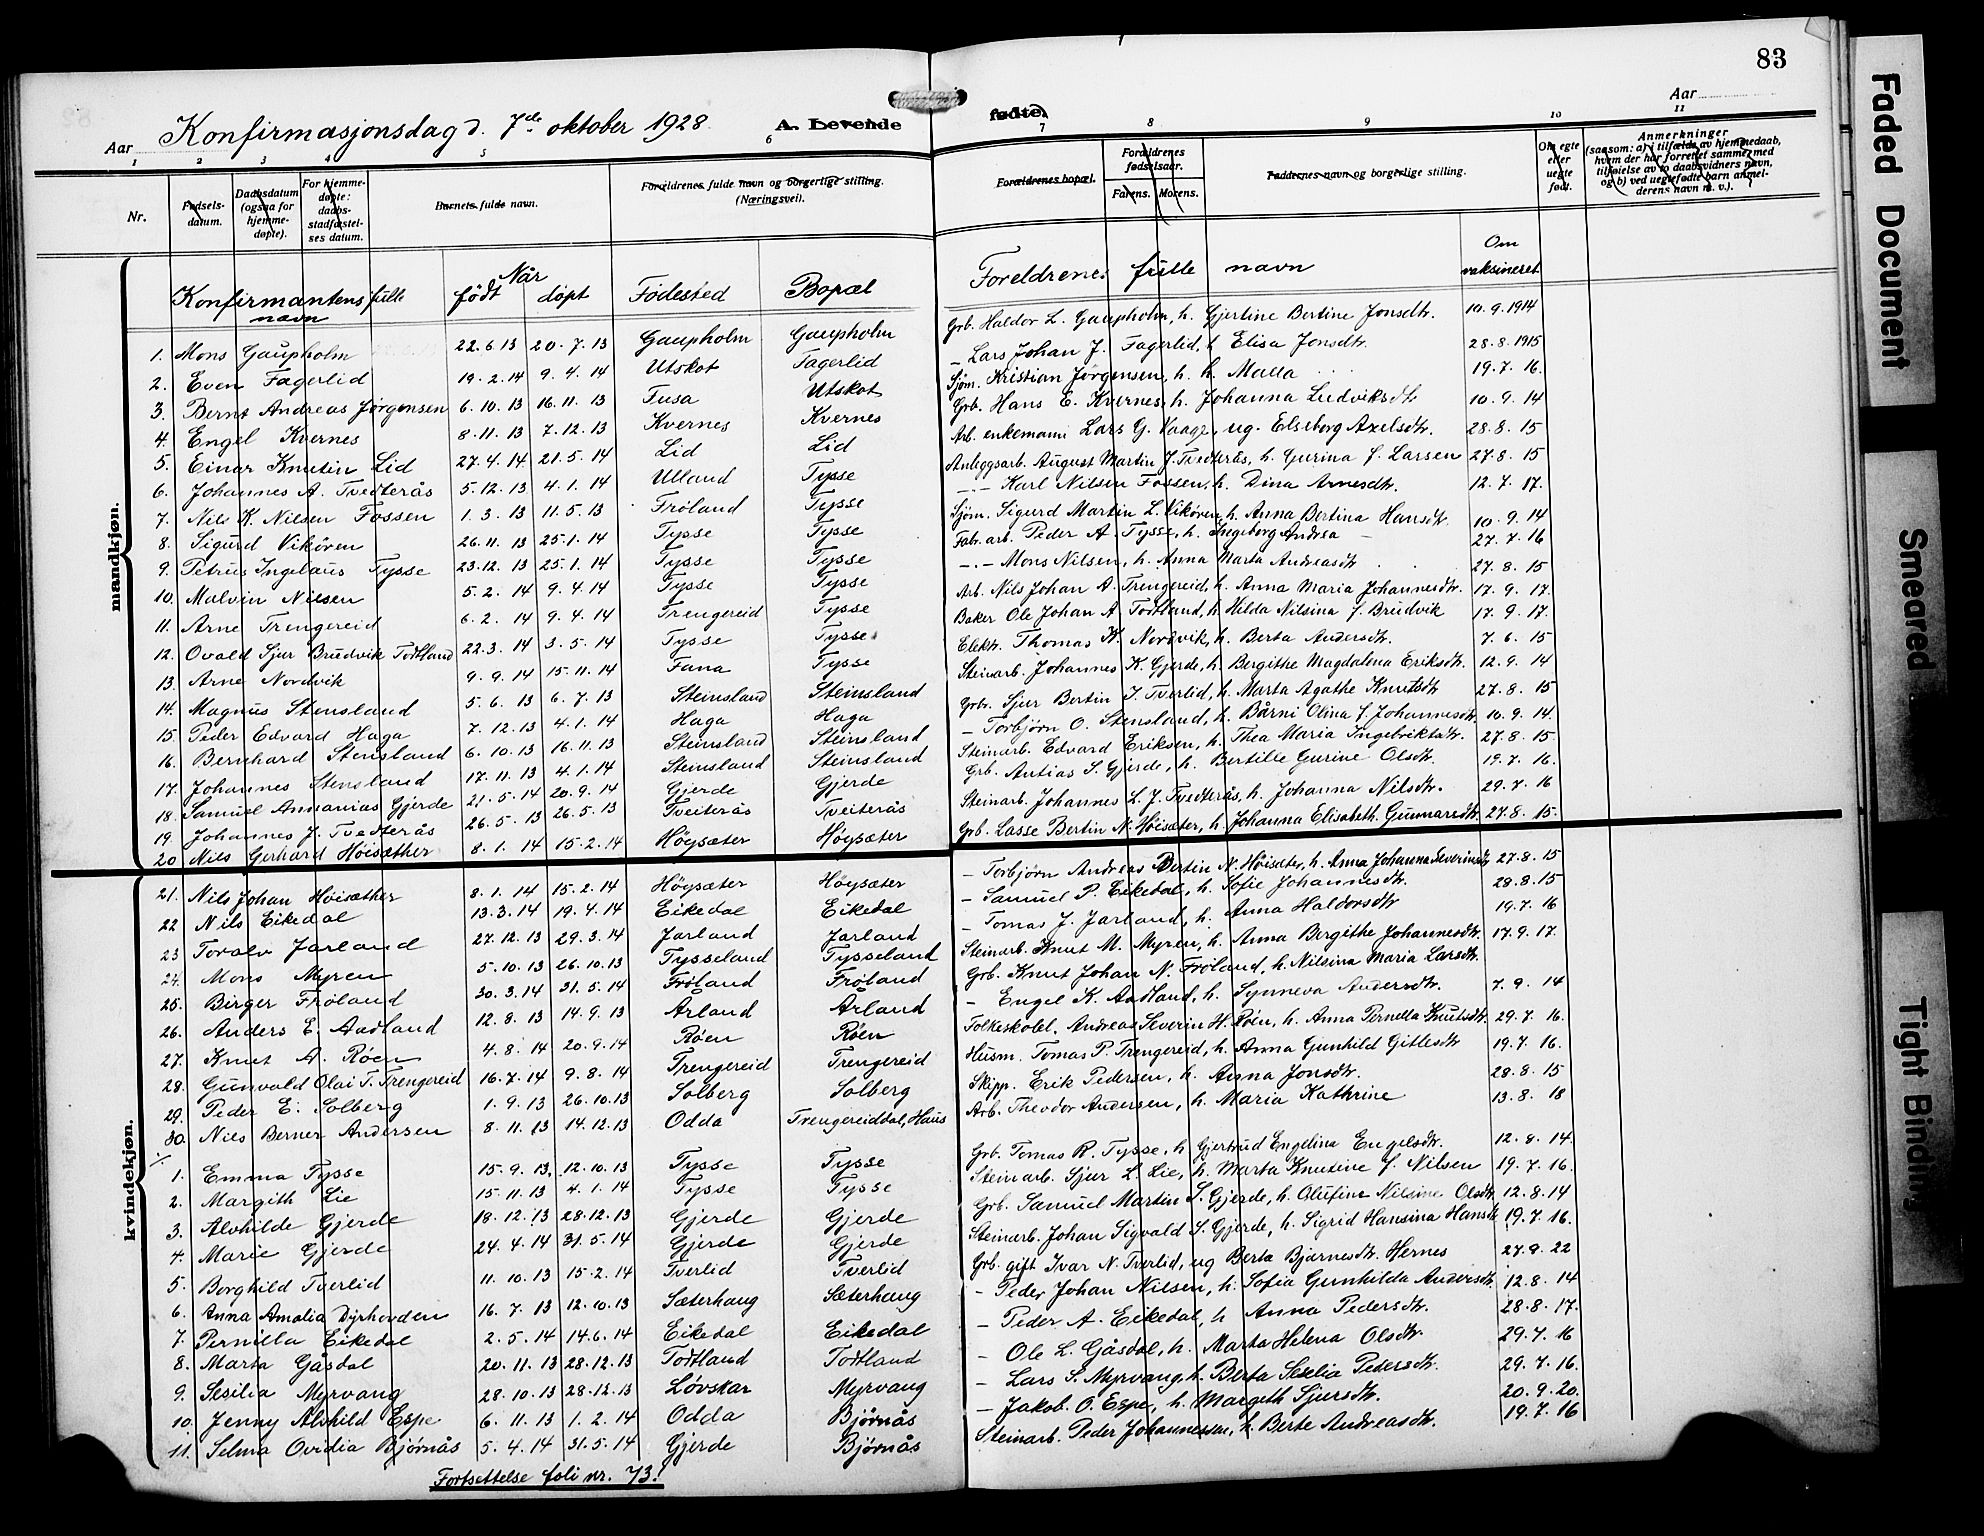 83
Aar Konfirmasjonsdag d. 7de oktober 1928. A. Levende fødte. Aar
1 2 3 4 5 6 7 8 9 10 11
Nr. Fødsels-datum. Daabsdatum (ogsaa for hjemme-døpte). For hjemme-døpte: daabs-stadfæstel-ses datum. Barnets fulde navn. Forældrenes fulde navn og borgerlige stilling. (Næringsvei). Forældrenes bopæl. Forældrenes fødselsaar. Farens. Morens. Faddernes navn og borgerlige stilling. Om egte eller uegte født. Anmerkninger (saasom: a) i tilfælde av hjemmedaab, hvem der har forrettet samme med tilføielse av to daabsvidners navn, og b) ved uegtefødte barn anmel-derens navn m. v.).
Konfirmantens fulle navn Når født døpt Fødested Bopæl Foreldrenes fulle navn Om vaksineret
mandkjøn.
1. Mons Gaupholm 22.6.13 20.7.13 Gaupholm Gaupholm Grb. Haldor L. Gaupholm, h. Gjertine Bertine Jonsdtr. 10.9.1914
2. Even Fagerlid 19.2.14 9.4.14 Utskot Fagerlid – Lars Johan J. Fagerlid, h. Elisa Jonsdtr. 28.8.1915
3. Bernt Andreas Jørgensen 6.10.13 16.11.13 Fusa Utskot Sjøm. Kristian Jørgensen, h. h. Malla 19.7.16.
4. Engel Kvernes 8.11.13 7.12.13 Kvernes Kvernes Grb. Hans E. Kvernes, h. Johanna Ludviksdtr 10.9.14
5. Einar Knutin Lid 27.4.14 21.5.14 Lid Lid Arb. enkemann Lars G. Vaage, ug. Elseborg Axelsdtr. 28.8.15
6. Johannes A. Tvedterås 5.12.13 4.1.14 Ulland Tysse Anleggsarb. August Martin J. Tvedterås, h. Gurina f. Larsen 27.8.15
7. Nils K. Nilsen Fossen 1.3.13 11.5.13 Frøland Tysse –"– Karl Nilsen Fossen, h. Dina Arnesdtr. 12.7.17.
8. Sigurd Vikøren 26.11.13 25.1.14 Tysse Tysse Sjøm. Sigurd Martin L. Vikøren, h. Anna Bertina Hansdtr. 10.9.14
9. Petrus Ingelaus Tysse 23.12.13 25.1.14 Tysse Tysse Fabr.arb. Peder A. Tysse, h. Ingeborg Andrea – 27.7.16
10. Malvin Nilsen 5.2.14 9.4.14 Tysse Tysse –"– Mons Nilsen, h. Anna Marta Andreasdtr 27.8.15
11. Arne Trengereid 6.2.14 9.4.14 Trengereid Tysse Arb. Nils Johan A. Trengereid, h. Anna Maria Johannesdtr. 17.9.17.
12. Ovald Sjur Brudvik Totland 22.3.14 3.5.14 Tysse Tysse Baker Ole Johan A. Totland, h. Hilda Nilsina f. Brudvik 17.9.17.
13. Arne Nordvik 9.9.14 15.11.14 Fana Tysse Elektr. Thomas K. Nordvik, h. Berta Andersdtr. 7.6.15
14. Magnus Stensland 5.6.13 6.7.13 Steinsland Steinsland Steinarb. Johannes K. Gjerde, h. Bergithe Magdalena Eriksdtr. 12.9.14
15. Peder Edvard Haga 7.12.13 4.1.14 Haga Haga Grb. Sjur Bertin I. Tverlid, h. Marta Agathe Knutsdtr 27.8.15
16. Bernhard Stensland 6.10.13 16.11.13 Steinsland Steinsland – Torbjørn O. Stensland, h. Bårni Olina f. Johannesdtr. 10.9.14.
17. Johannes Stensland 17.11.13 4.1.14 Steinsland Steinsland Steinarb. Edvard Eriksen, h. Thea Maria Ingebriktsdtr. 27.8.15
18. Samuel Annanias Gjerde 21.5.14 20.9.14 Gjerde Gjerde Grb. Antias S. Gjerde, h. Bertille Gurine Olsdtr. 19.7.16.
19. Johannes J. Tvedterås 26.5.13 26.5.13 Tveiterås Tveiterås Steinarb. Johannes L. J. Tvedterås, h. Johanna Nilsdtr. 29.7.16
20 Nils Gerhard Høisæther 8.1.14 15.2.14 Høysæter Høysæter Grb. Lasse Bertin N. Høisæter, h. Johanna Elisabeth Gunnarsdtr. 27.8.15.
kvindekjøn.
21. Nils Johan Høisæther 8.1.14 15.2.14 Høysæter Høysæter – Torbjørn Andreas Bertin N. Høisæter, h. Anna Johanna Severinsdtr 27.8.15
22 Nils Eikedal 13.3.14 19.4.14 Eikedal Eikedal – Samuel P. Eikedal, h. Sofie Johannesdtr. 28.8.15
23 Toralv Jarland 27.12.13 29.3.14 Jarland Jarland – Tomas J. Jarland, h. Anna Haldorsdtr 19.7.16
24. Mons Myren 5.10.13 26.10.13 Tysseland Tysseland Steinarb. Knut M. Myren, h. Anna Birgithe Johannesdtr. 17.9.17.
25. Birger Frøland 30.3.14 31.5.14 Frøland Frøland Grb. Knut Johan N. Frøland, h. Nilsina Maria Larsdtr.
26. Anders E. Aadland 12.8.13 14.9.13 Årland Årland – Engel K. Aadland, h. Synneva Andersdtr. 7.9.14
27. Knut A. Røen 4.8.14 20.9.14 Røen Røen Folkeskolel. Andreas Severin H. Røen, h. Anna Pernella Knutsdtr. 29.7.16.
28. Gunvald Olai T. Trengereid 16.7.14 9.8.14 Trengereid Trengereid Husm. Tomas P. Trengereid, h. Anna Gunhild Gitlesdtr 19.7.16.
29. Peder E. Solberg 1.9.13 26.10.13 Solberg Solberg Skipp. Erik Pedersen, h. Anna Jonsdtr. 28.8.15
30. Nils Berner Andersen 8.11.13 14.12.13 Odda Trengereiddal, Haus Arb. Theodor Andersen, h. Maria Kathrine 13.8.18
1. Emma Tysse 15.9.13. 12.10.13 Tysse Tysse Grb. Tomas R. Tysse, h. Gjertrud Engelina Engelsdtr. 12.8.14.
2. Margith Lie 15.11.13 4.1.14 Tysse Tysse Steinarb. Sjur L. Lie, h. Marta Knutine f. Nilsen 19.7.16.
3. Alvhilde Gjerde 18.12.13 28.12.13 Gjerde Gjerde Grb. Samuel Martin S. Gjerde, h. Olufine Nilsine Olsdtr. 12.8.14
4. Marie Gjerde 24.4.14 31.5.14 Gjerde Gjerde Steinarb. Johan Sigvald S. Gjerde, h. Sigrid Hansina Hansdtr 19.7.16.
5. Borghild Tverlid 11.10.13 15.2.14 Tverlid Tverlid Grb. gift Ivar N. Tverlid, ug Berta Bjarnesdtr. Hernes 27.9.22
6. Anna Amalia Dyrhovden 16.7.13 12.10.13 Sæterhaug Sæterhaug – Peder Johan Nilsen, h. Sofia Gunhilda Andersdtr. 12.8.14
7. Pernilla Eikedal 2.5.14 14.6.14 Eikedal Eikedal – Peder A. Eikedal, h Anna Pedersdtr. 28.8.17.
8. Marta Gåsdal 20.11.13 28.12.13 Totland Totland – Ole L. Gåsdal, h. Marta Helena Olsdtr. 29.7.16
9. Sesilia Myrvang 28.10.13 28.12.13 Løvskar Myrvang – Lars S. Myrvang, h. Berta Seselia Pedersdtr. 29.7.16.
10. Jenny Alvhild Espe 6.11.13 1.2.14 Odda Bjørnås – Jakob O. Espe, h. Margith Sjursdtr. 20.9.20.
11. Selma Ovidia Bjørnås 5.4.14 31.5.14 Gjerde Bjørnås Steinarb. Peder Johannessen, h. Berte Andreasdtr. 19.7.16
Fortsettelse foli nr. 73!
Faded Document
Smeared
Tight Binding